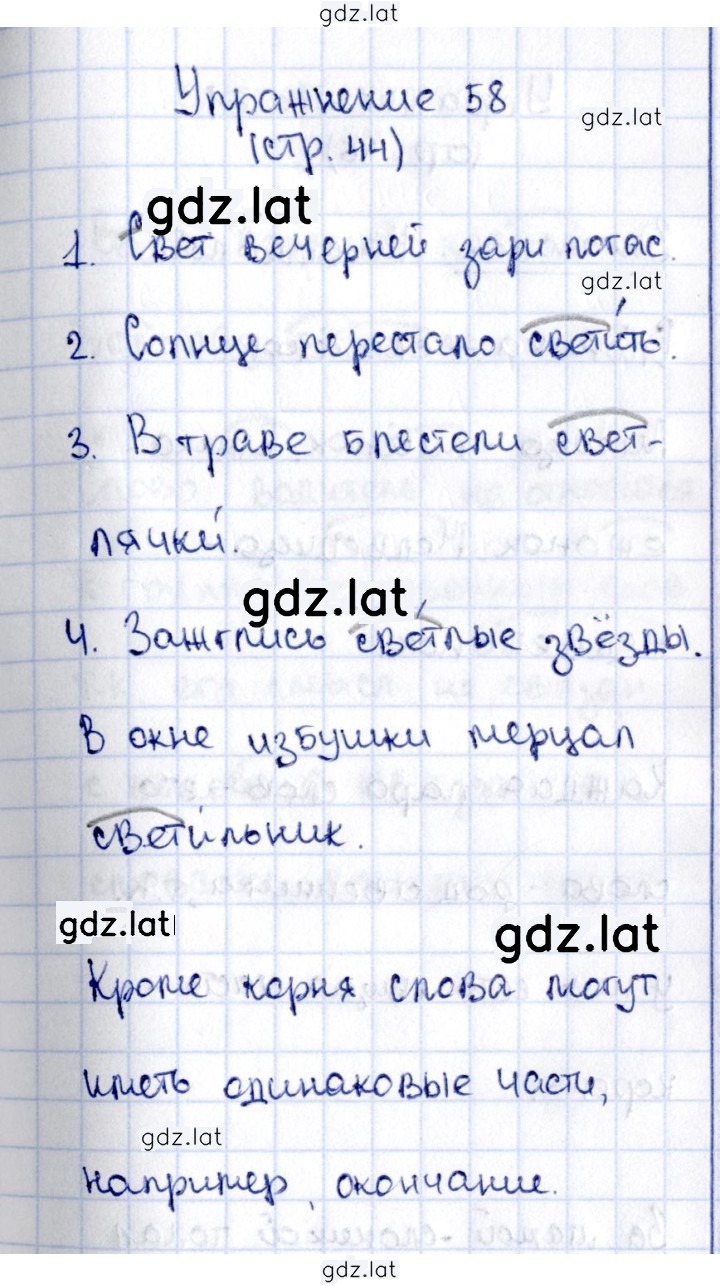 gdz.lat
Упражнение 58
gdz.lat
(стр. 44)
gdz.lat
1. Свет вечерней зари погас.
gdz.lat
2. Солнце перестало свети́ть.
3. В траве блестели свет-
лячки́.
gdz.lat
4. Зажглись све́тлые звёзды.
В окне избушки мерцал
свети́льник.
gdz.lat
gdz.lat
Кроме корня слова могут
иметь одинаковые части,
gdz.lat
например, окончание.
gdz.lat